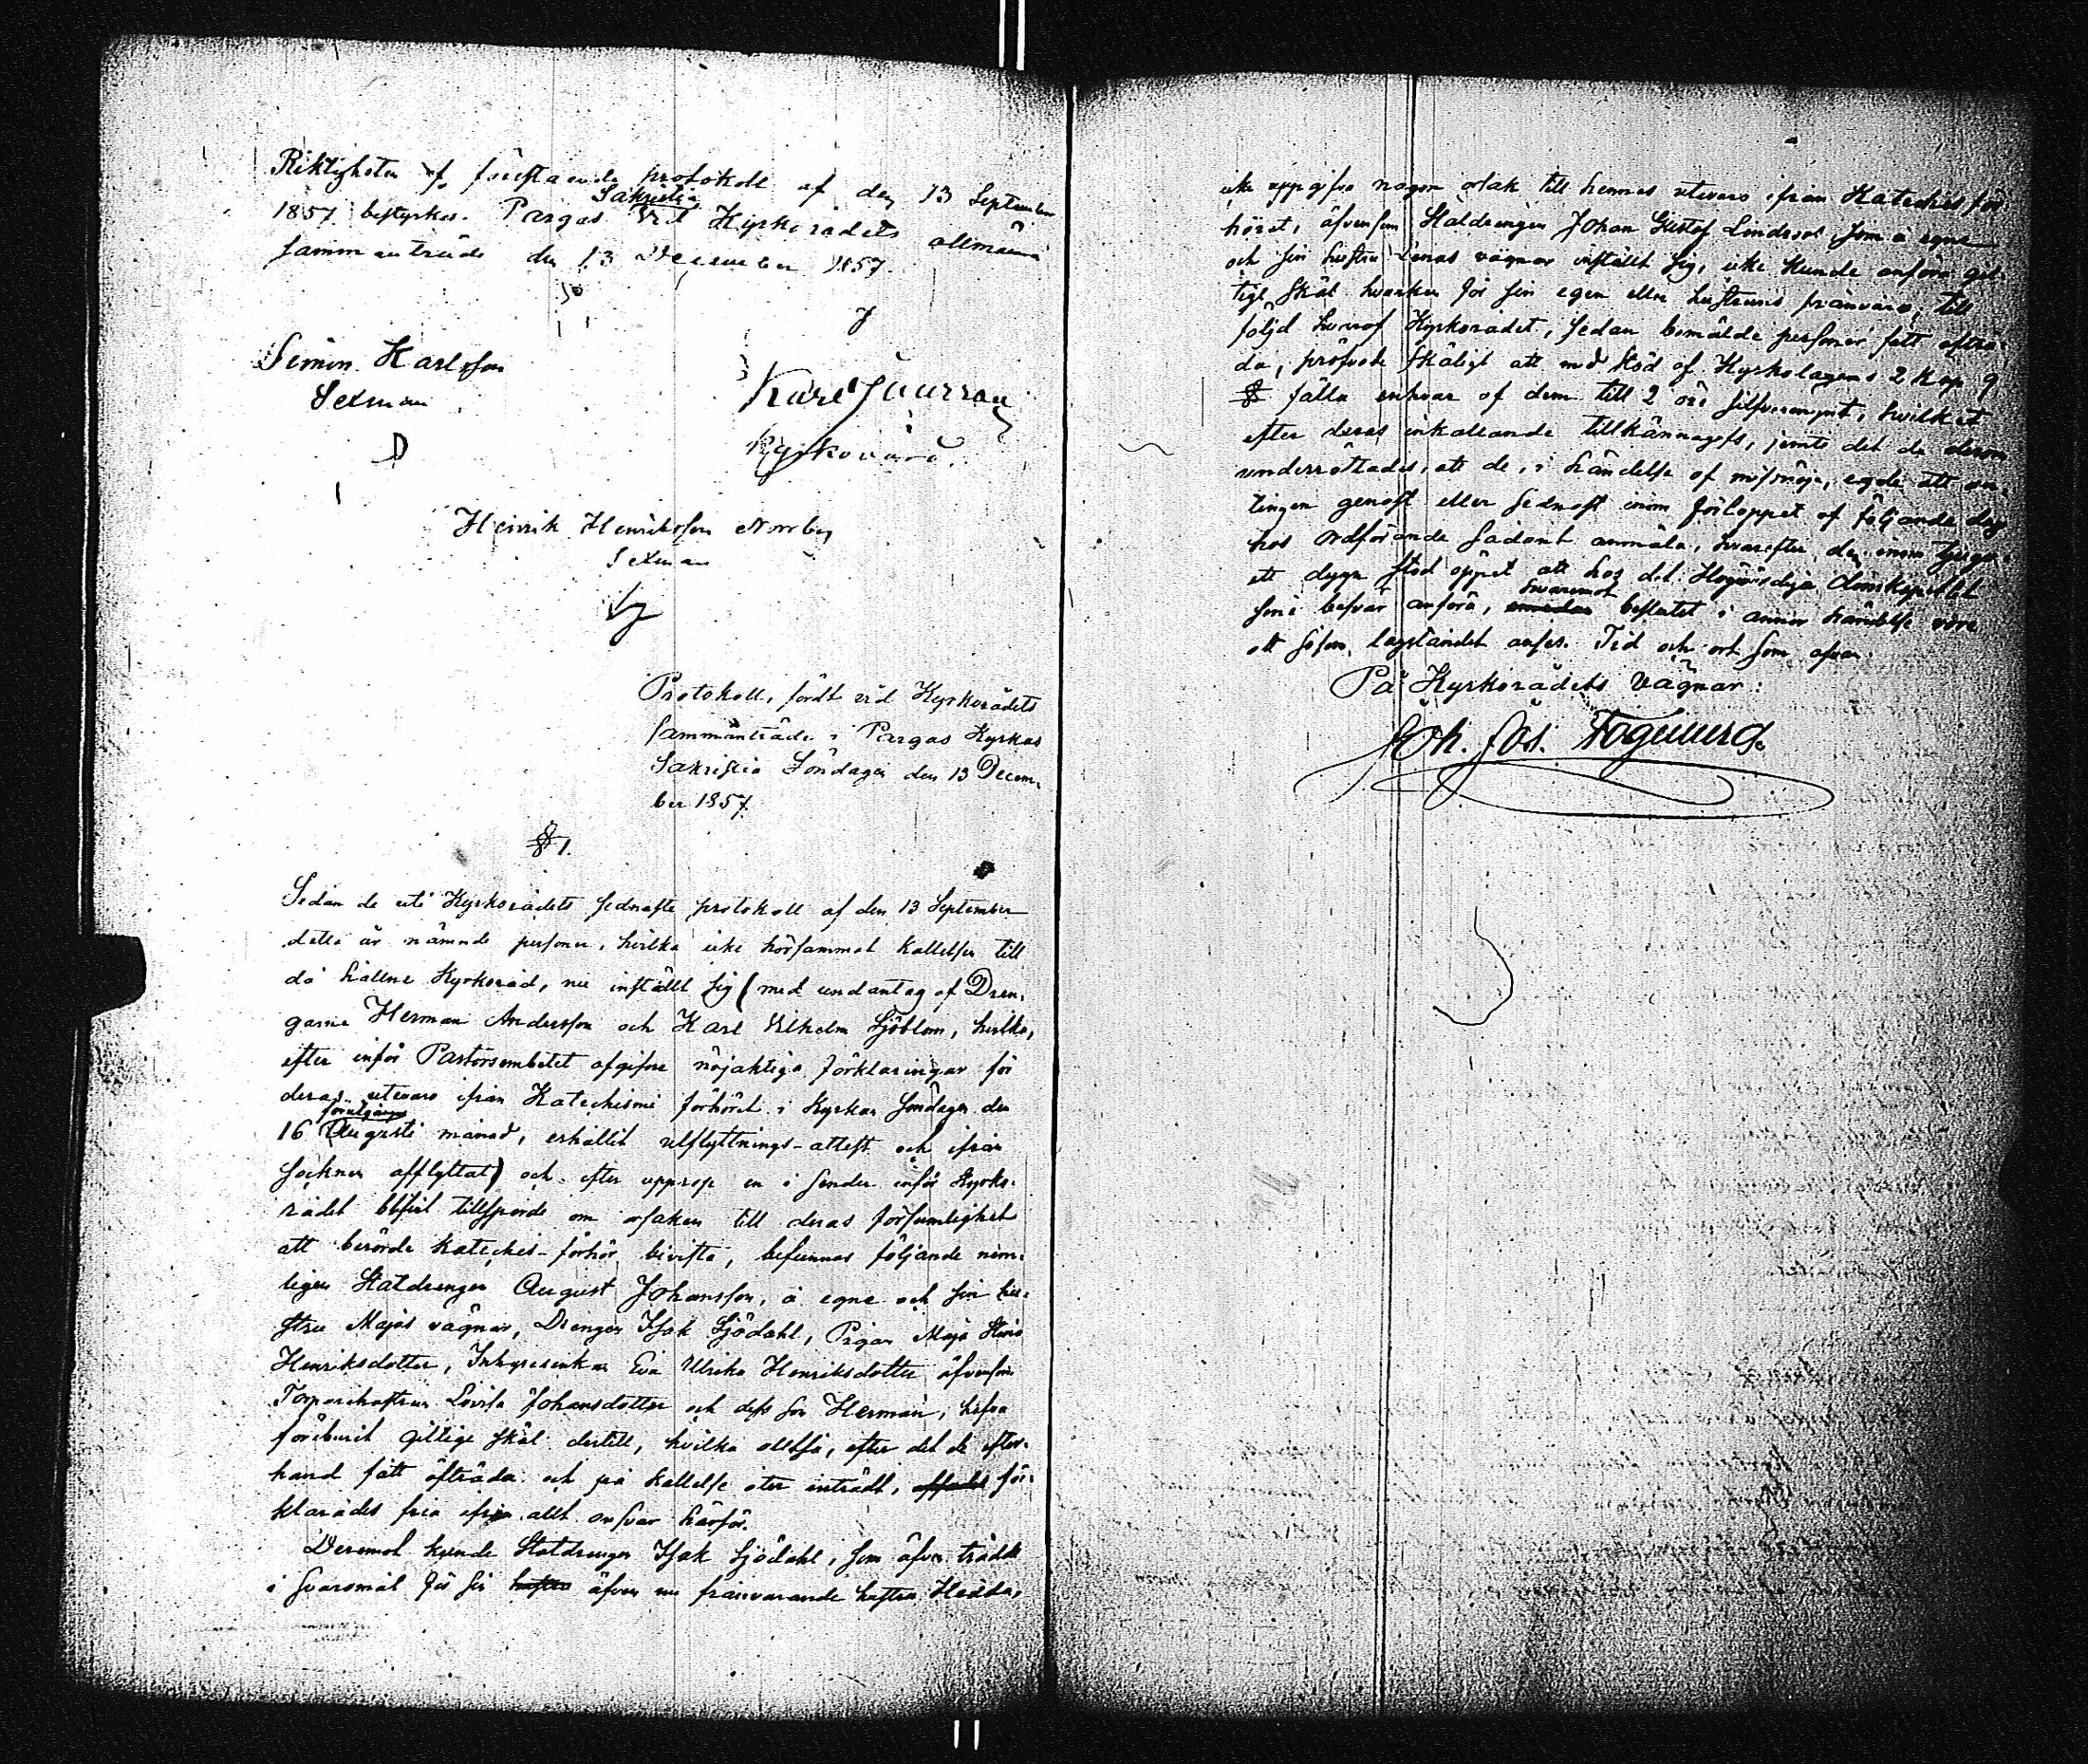 Riktigheten af förestående protokoll af den 13 September
1857 bestyrkes. Pargas Sakristia vid Kyrkorådets allmänna
sammanträde den 13 December 1857.
Simon Karlsson
Sexman
Karl
Kyrkovärd.
Henrik Henriksson Norrby
Sexman
Protokoll, fördt vid Kyrkorådets
sammanträde i Pargas Kyrkas
Sakristia Söndagen den 13 Decem-
ber 1857.
§ 1.
Sedan de uti Kyrkorådets sednaste protokoll af den 13 September
detta år nämnde personer, hvilka icke hörsammat kallelsen till
då hållne Kyrkoråd, nu inställt sig (med undantag af Dren-
garne Herman Andersson och Karl Vilhelm Sjöblom, hvilka,
efter inför Pastorsembetet afgifne nöjaktiga förklaringar för
deras utevaro ifrån Katechismi förhöret i Kyrkan Söndagen den
16 förutgångne Augusti månad, erhållit utflyttnings-attest och ifrån
Socknen afflyttat) och efter upprop en i sender inför Kyrko-
rådet blifvit tillsporde om orsaken till deras försumlighet
att berörde Katechis-förhör bivista, befunnos följande nem-
ligen Statdrengen August Johansson, å egne och sin hu-
stru Majas vägnar, Drengen Isak Sjödahl, Pigan Maja Stina
Henriksdotter, Inhyresenkan Eva Ulrika Henriksdotter äfvensom
Torparehustrun Lovisa Johansdotter och dess son Herman, hafva
föreburit giltige skäl dertill, hvilka alltså, efter det de efter-
hand fått afträda och på kallelse åter inträdt, för-
klarades fria ifrån allt ansvar härför.
Deremot kunde Statdrengen Isak Sjödahl, som äfven trädde
i svaromål för sin hustru äfven nu frånvarande hustru Hedda,
icke uppgifva någon orsak till hennes utevaro ifrån Katechisför-
höret, äfvensom Statdrengen Johan Gustaf Lindroos, som å egne
och sin hustru Lenas vägnar inställt sig, icke kunde anföra gil-
tigt skäl hvarken för sin egen eller hustruns frånvaro; till
följd hvaraf Kyrkorådet, sedan bemälde personer fått afträ-
da, pröfvade skäligt att med stöd af Kyrkolagens 2 Kap. 9
§ fälla enhvar af dem till 2 öre silfvermynt, hvilket
efter deras inkallande tillkännagafs, jemte det de derom
underrättades, att de, i händelse af missnöje, egde att an-
tingen genast eller sednast inom förloppet af följande dag
hos Ordförande sådant anmäla, hvarefter dem inom
ett dygn stod öppet att hos det Högvördiga Domkapitlet
sine besvär anföra, hvaremot beslutet i annor händelse vore
att såsom lagståndet anses. Tid och ort som ofvan.
På Kyrkorådets vägnar:
Joh.